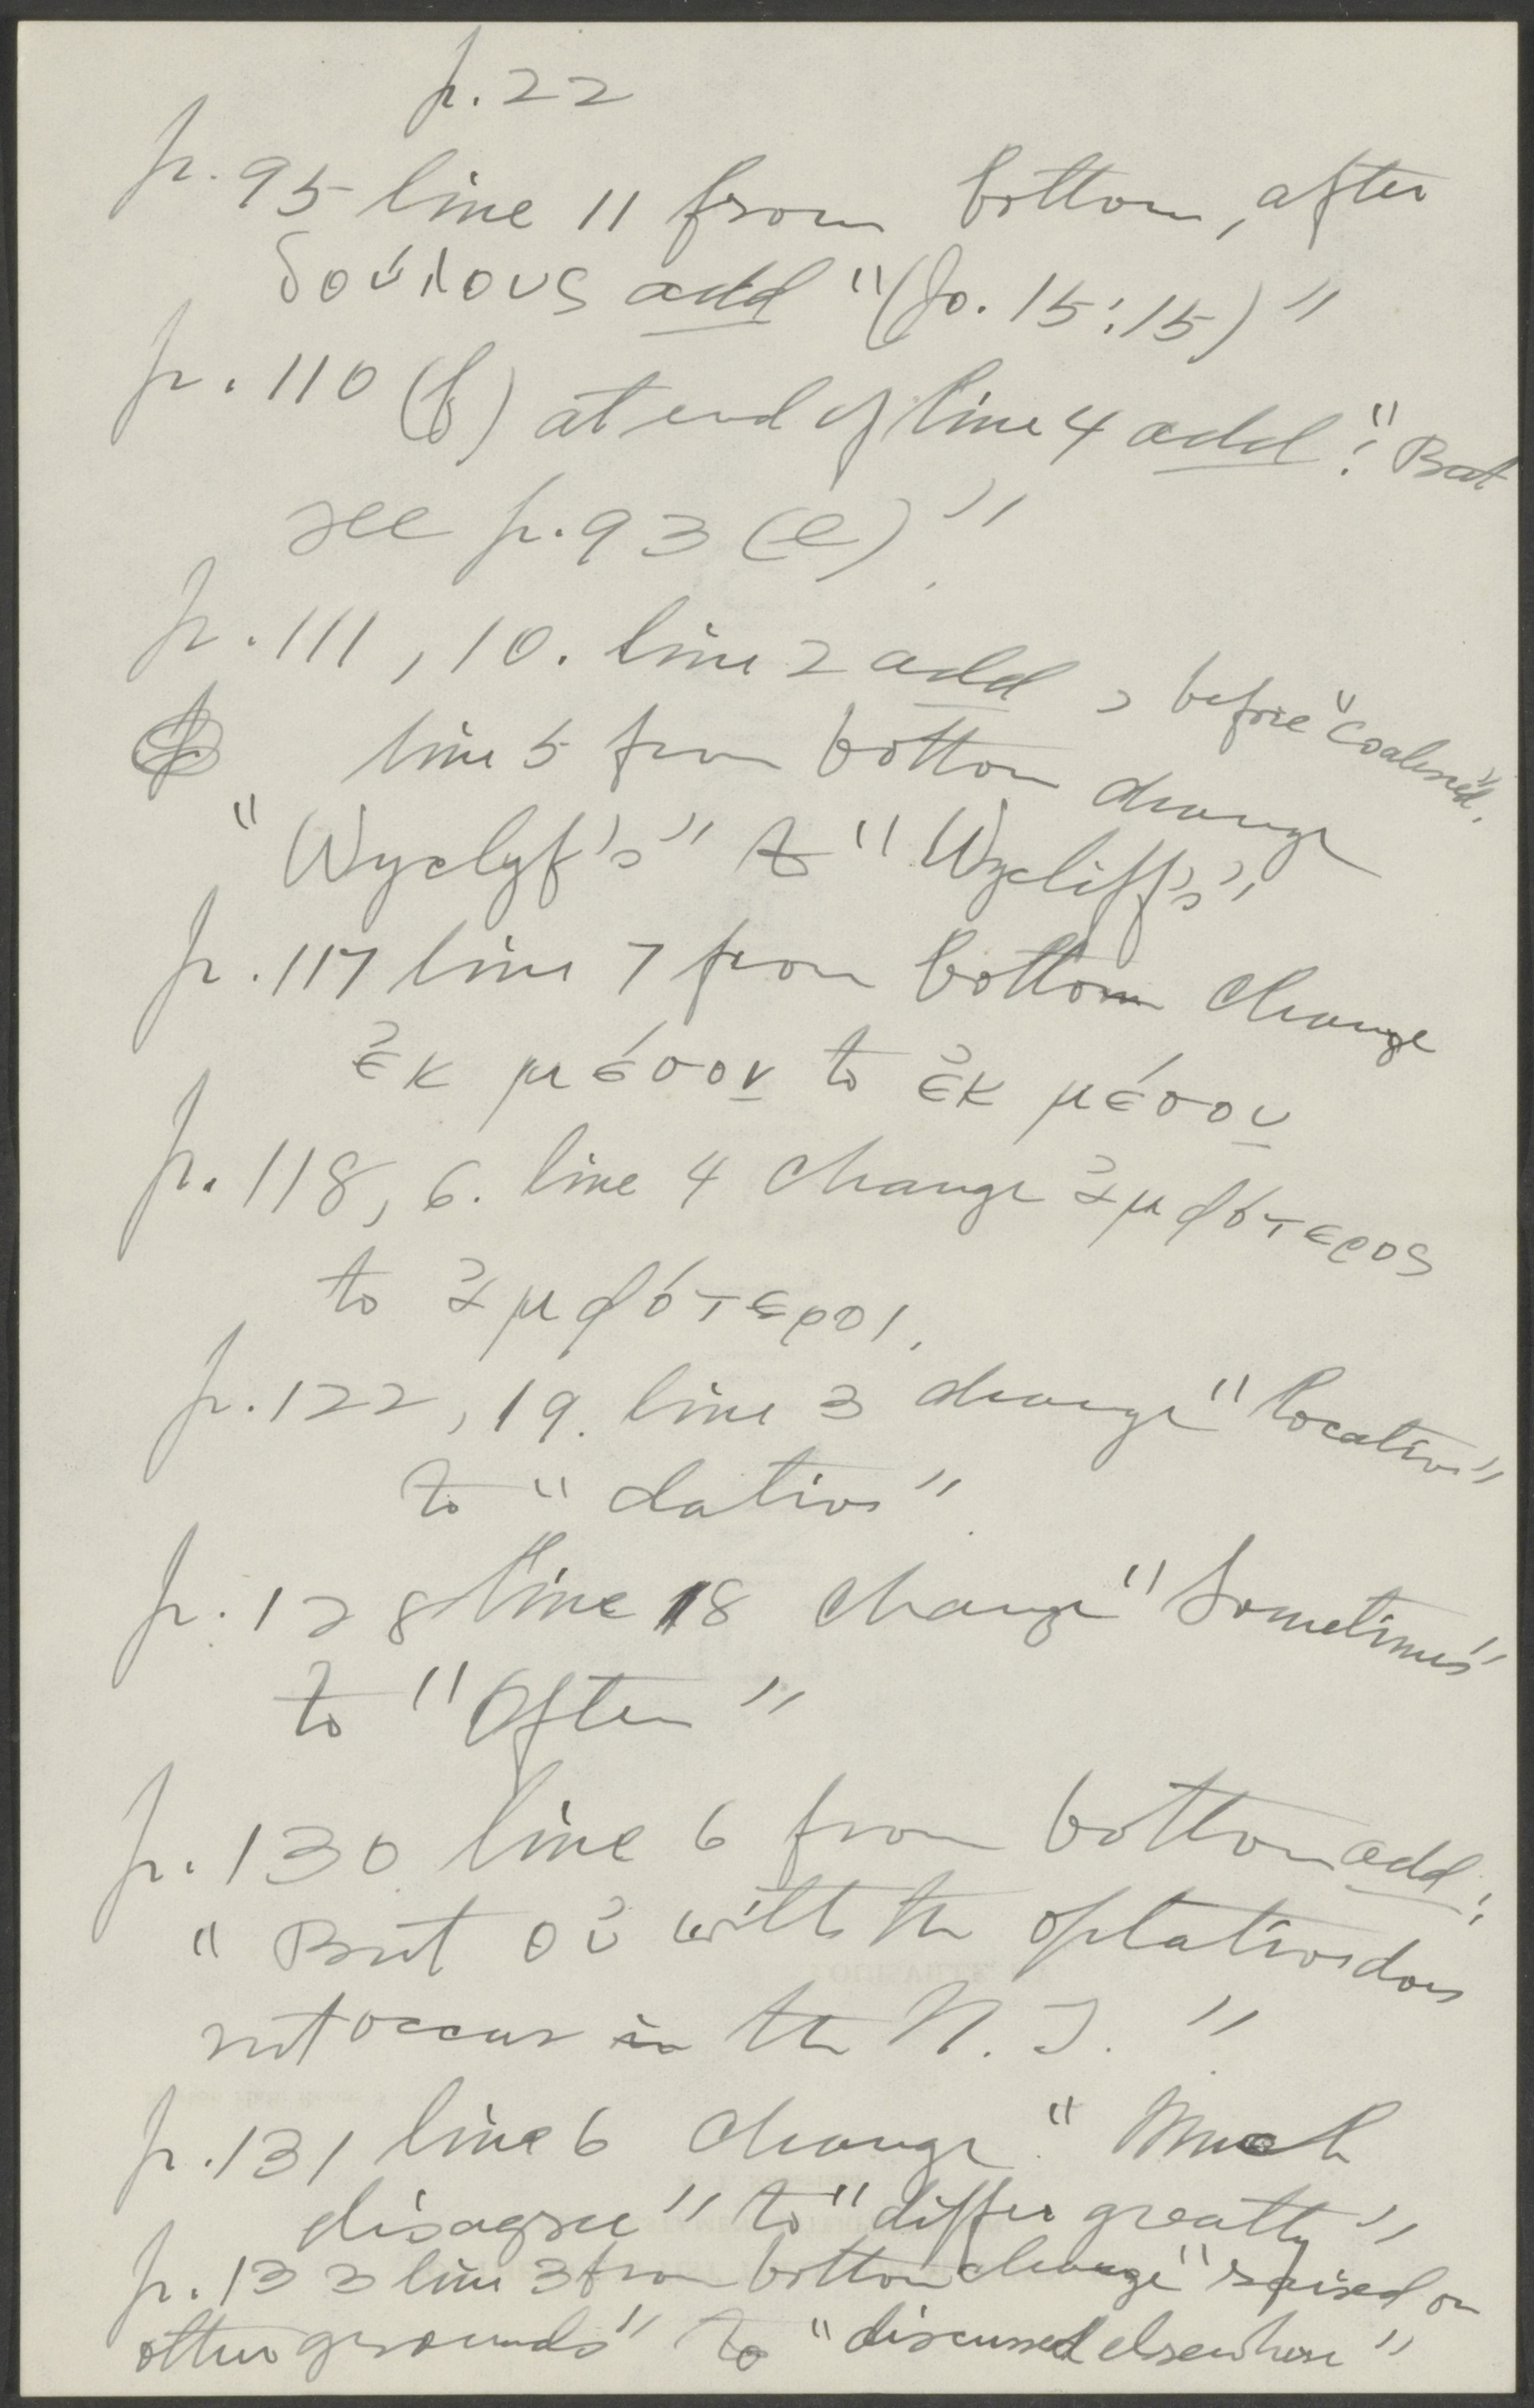 p. 22
p. 95 line 11 from bottom, after
δούλους add "(Jo. 15:15)"
p. 110 (f) at end of line 4 add: "But
see p. 93 (e)"
p. 111, 10. line 2 add , before "coalesced".
line 5 from bottom change
"Wyclyf's" to "Wycliff's"
p. 117 line 7 from bottom change
ἐκ μέσον to ἐκ μέσου
p. 118, 6. line 4 change ἀμφότερος
to ἀμφότεροι.
p. 122, 19. line 3 change "locative"
to "dative"
p. 128 line 18 change "Sometimes"
to "Often"
p. 130 line 6 from bottom add:
"But οὐ with the optative does
not occur in the N. T."
p. 131 line 6 change "Much
disagree" to "differ greatly"
p. 133 line 3 from bottom change "raised on
other grounds" to "discussed elsewhere"